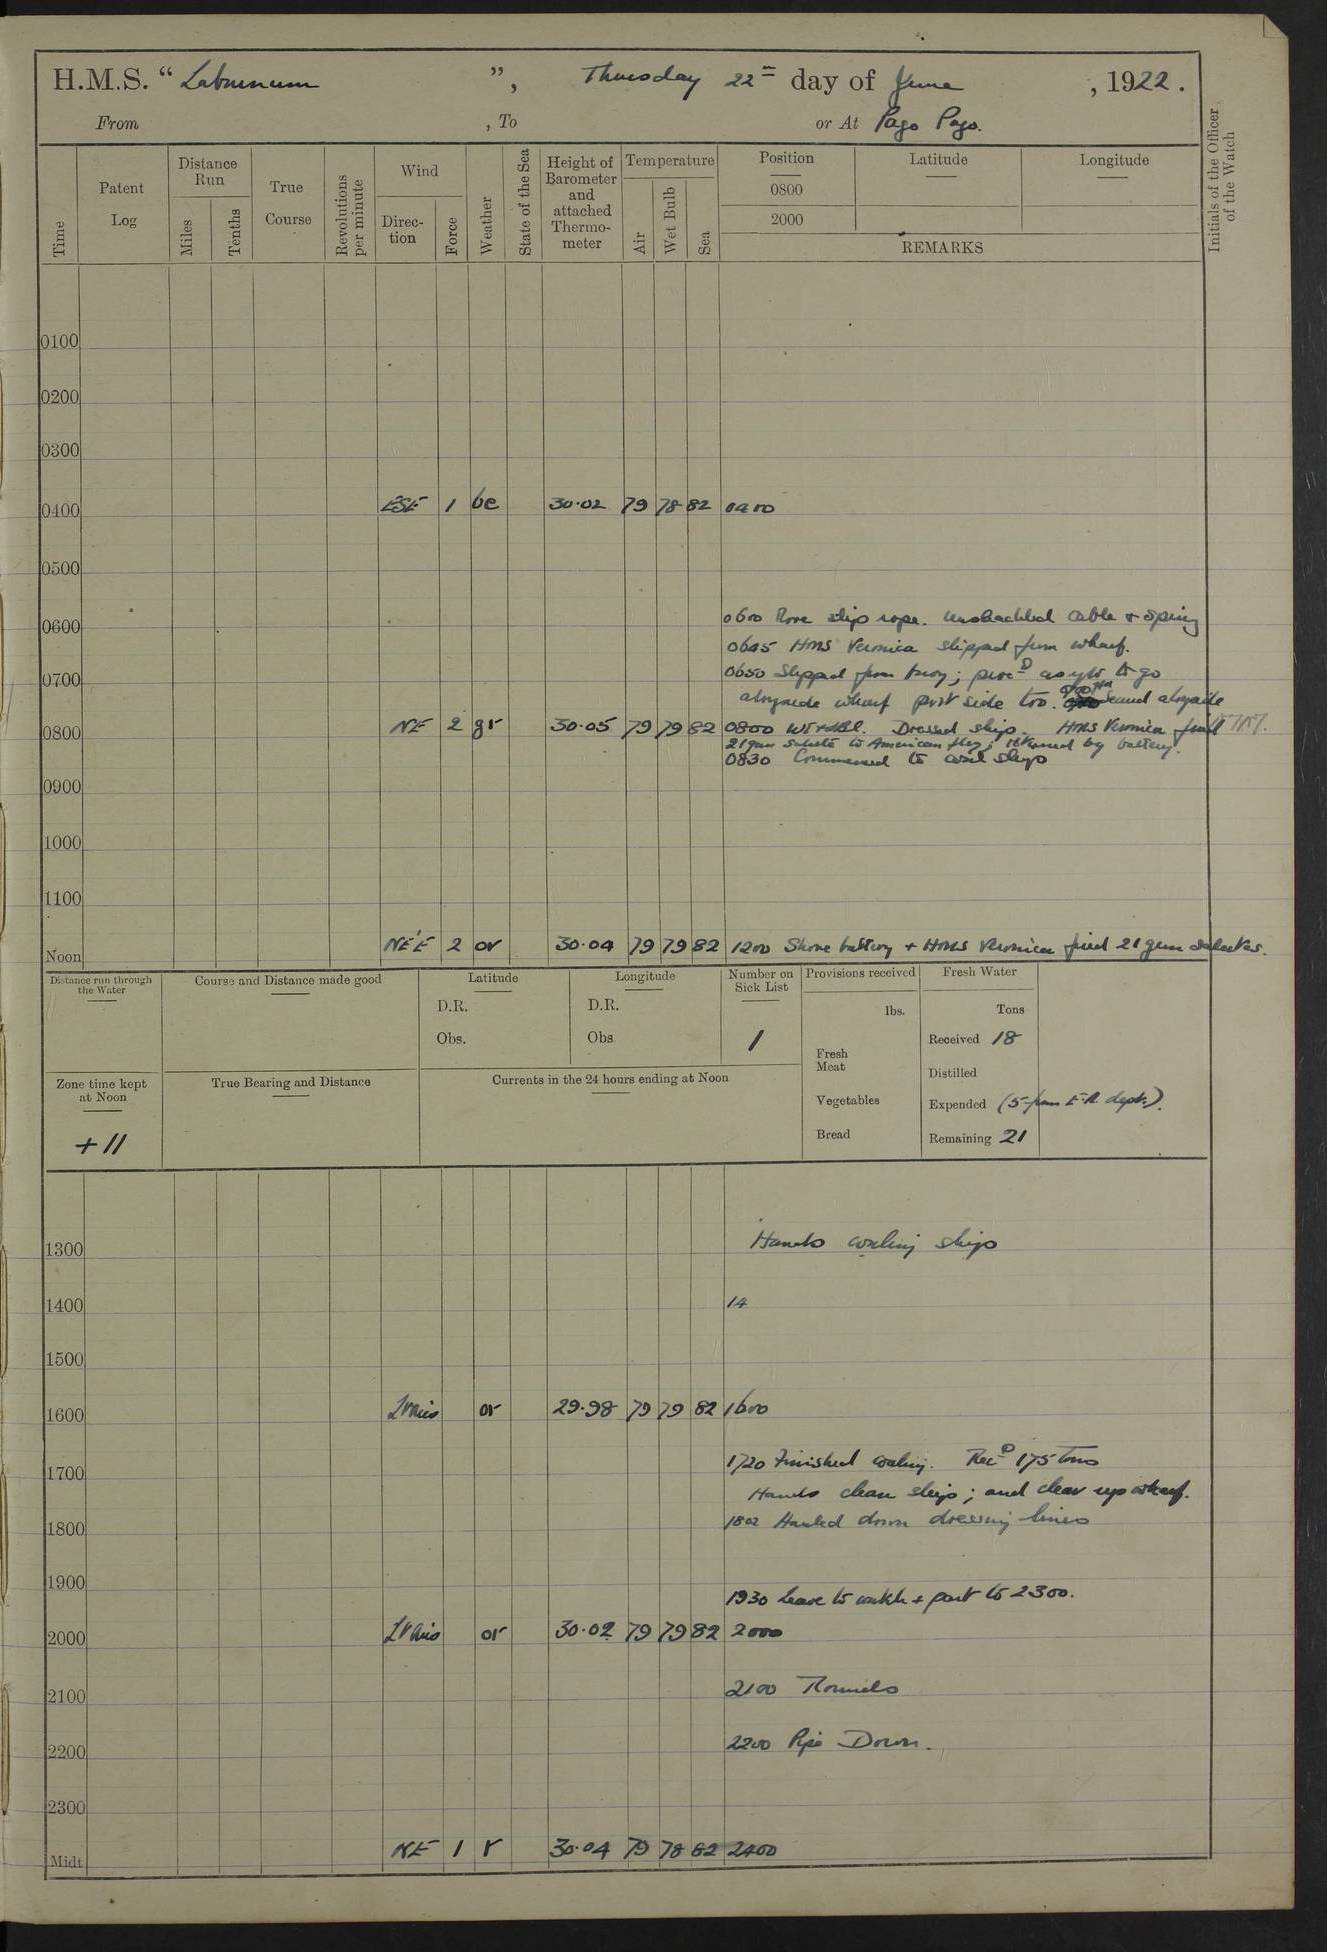 H.M.S. “ Laburnum ”, Thursday 22nd day of June , 1922.
From , To or At Pago Pago.
Initials of the Officer of the Watch
Time
Patent Log
Distance Run
Miles
Tenths
True Course
Revolutions per minute
Wind
Direc- tion
Force
Weather
State of the Sea
Height of Barometer and attached Thermo- meter
Temperature
Air
Wet Bulb
Sea
Position
0800
2000
Latitude
Longitude
REMARKS
0100
0200
0300
0400 ESE 1 bc 30·02 79 78 82 0400
0500
0600 0600 Rove slip rope. Unshackled cable & spring
0645 HMS Veronica slipped from wharf.
0700 0650 Slipped from buoy; proc'd to go
alongside wharf port side too. secured alongside
0800 NE 2 gr 30·05 79 79 82 0800 Dressed ship. HMS Veronica fired
21 gun salute to American flag; returned by battery.
0830 Commenced to coal ship
0900
1000
1100
Noon NE'E 2 or 30·04 79 79 82 1200 Shore battery & HMS Veronica fired 21 gun salutes.
Distance run through the Water
Course and Distance made good
Latitude
D.R.
Obs.
Longitude
D.R.
Obs
Number on Sick List
1
Provisions received
lbs.
Fresh Meat
Vegetables
Bread
Fresh Water
Tons
Received 18
Distilled
Expended (5 from E.R. dept.).
Remaining 21
Zone time kept at Noon
+11
True Bearing and Distance
Currents in the 24 hours ending at Noon
1300 Hands coaling ship
1400 14
1500
1600 Lt airs or 29·98 79 79 82 1600
1700 1720 Finished coaling. Rec'd 175 tons
Hands clean ship; and clear up wharf.
1800 1802 Hauled down dressing lines
1900 1930 Leave to watch & part to 2300.
2000 Lt airs or 30·02 79 79 82 2000
2100 2100 Rounds
2200 2200 Pipe Down.
2300
Midt NE 1 r 30·04 79 78 82 2400